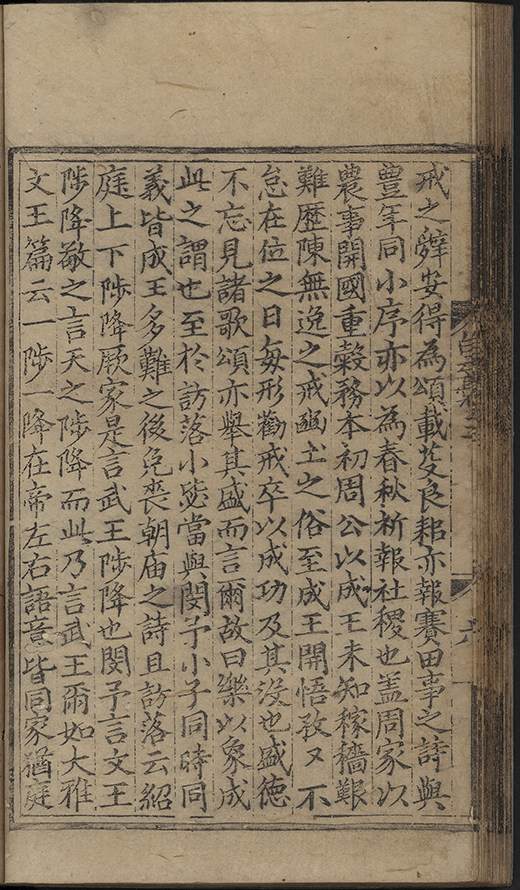 戒之辭安得為頌載芟良耜亦報賽田事之詩與
豊年同小序亦以為春秋祈報社稷也盖周家以
農事開國重穀務本初周公以成王未知稼穡艱
難歷陳無逸之戒豳土之俗至成王開悟孜〻不
怠在位之日每形勸戒卒以成功及其没也盛徳
不忘見諸歌頌亦舉其盛而言爾故曰樂以象成
此之謂也至於訪落小毖當與閔予小子同時同
義皆成王多難之後免喪朝庙之詩且訪落云紹
庭上下陟降厥家是言武王陟降也閔予言文王
陟降敬之言天之陟降而此乃言武王爾如大雅
文王篇云一陟一降在帝左右語意皆同家猶庭